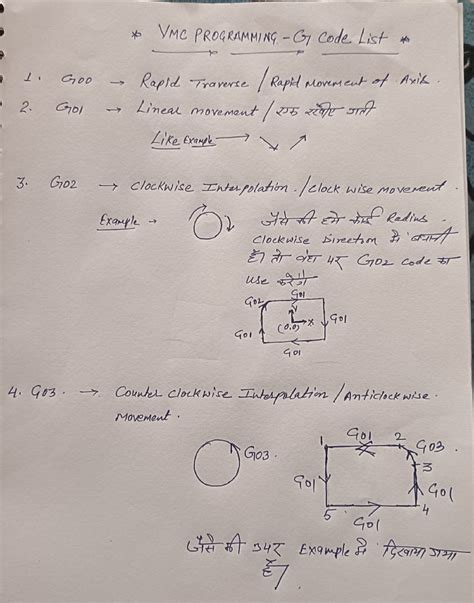 * VMC PROGRAMMING - G Code List *
1. G00 → Rapid Traverse / Rapid Movement of Axis.
2. G01 → Linear movement / एक सीधी गती
Like Example →
3. G02 → Clockwise Interpolation. / Clock wise movement.
Example → जैसे की हमे कोई Radius
Clockwise Direction में बनानी
है तो वहा पर G02 Code का
use करेंगे
G02 G01
Y
(0,0) X G01
G01
G01
4. G03. → Counter Clockwise Interpolation / Anticlockwise.
Movement.
G03.
1 G01 2 G03.
3
G01 G01
5 G01 4
जैसे की उपर Example में दिखाया गया
है।